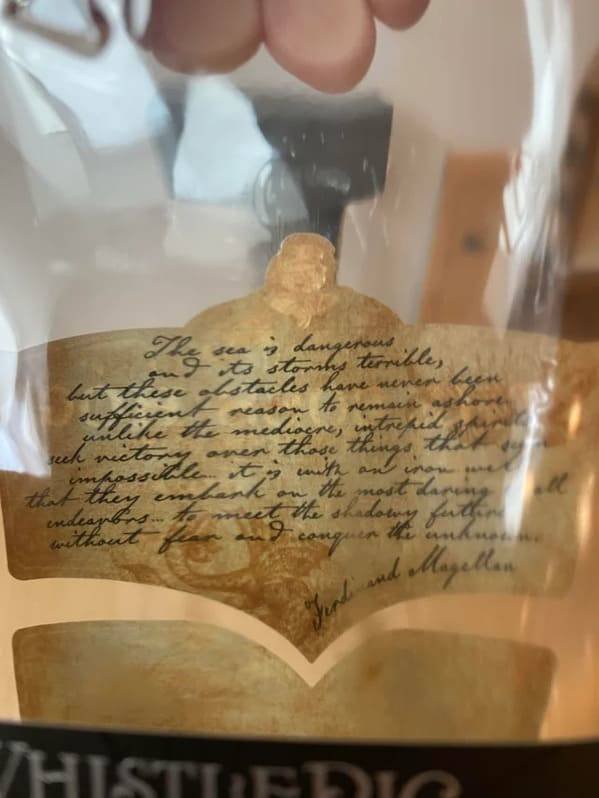 The sea is dangerous
and its storms terrible,
but these obstacles have never been
sufficient reason to remain ashore
unlike the mediocre, intrepid spirits
seek victory over those things that
impossible... it is with an iron
that they embark on the most daring all
endeavors... to meet the shadowy future
without fear and conquer the unknown
Ferdinand Magellan
WHISTLEPIG